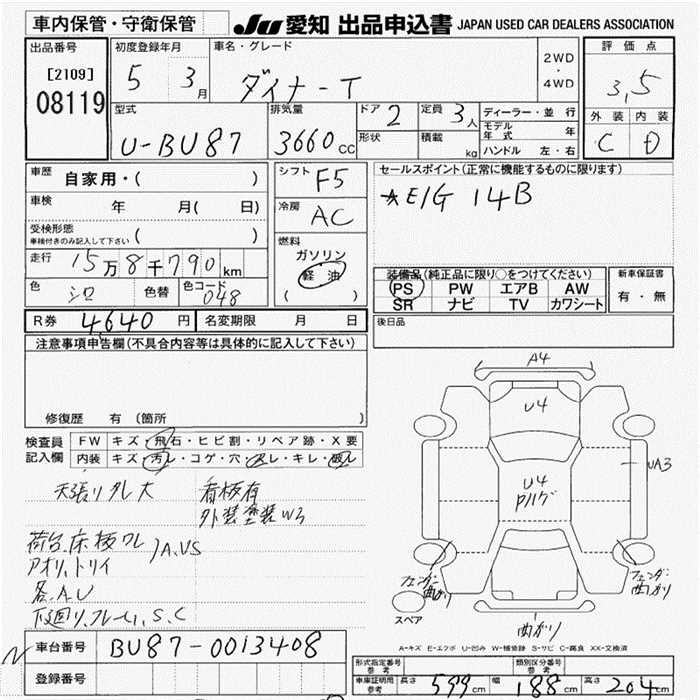 車内保管・守衛保管
JU 愛知 出品申込書 JAPAN USED CAR DEALERS ASSOCIATION
出品番号
[2109]
08119
初度登録年月
5 3月
車名・グレード
ダイナ-T
2WD
・
4WD
評価点
3,5
外装 内装
C D
型式
U-BU87
排気量
3660cc
ドア 2
形状
定員 3人
積載 kg
ディーラー・並行
モデル年式 年
ハンドル 左・右
車歴
自家用・( )
車検 年 月( 日)
受検形態
車検付きのみ記入して下さい ( )
走行 15万8千790km
色 シロ 色替 色コード 048
シフト F5
冷房 AC
燃料
ガソリン
軽油
( )
セールスポイント(正常に機能するものに限ります)
☆E/G 14B
装備品(純正品に限り○をつけてください)
PS PW エアB AW
SR ナビ TV カワシート
新車保証書
有・無
R券 4,640円 名変期限 月 日
後日品
注意事項申告欄(不具合内容等は具体的に記入して下さい)
修復歴 有(箇所 )
検査員記入欄
FW キズ・飛石・ヒビ割・リペア跡・X要
内装 キズ・汚レ・コゲ・穴・スレ・キレ・破レ
天張り外レ大
看板有
外装塗装W3
荷台、床板ワレ
アオリ、トリイ
A,US
各、A,U
下廻り、フレーム,S,C
A4
U4
U4
UA3
フェンダー曲がり
フェンダー曲がり
スペア
曲がり
A-キズ E-エクボ U-凹み W-補修跡 S-サビ C-腐食 XX-交換済
車台番号 BU87-0013408
登録番号
形式指定番号
参考
類別区分番号
参考
車庫証明用
参考
長さ 599cm 幅 188cm 高さ 204cm